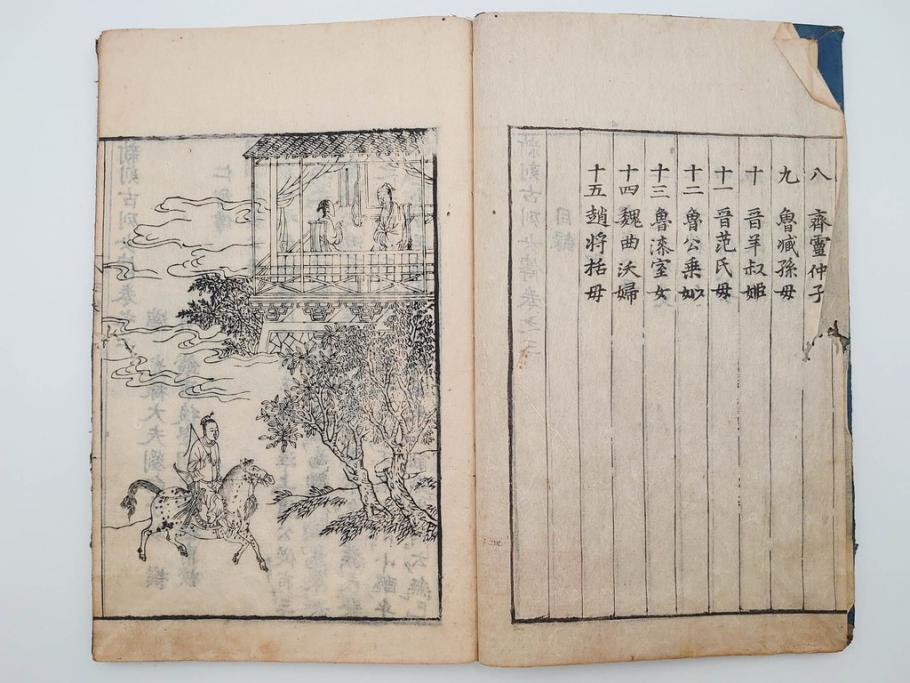 八 齊靈仲子
九 魯臧孫母
十 晉羊叔姬
十一 晉范氏母
十二 魯公乗姒
十三 魯漆室女
十四 魏曲沃婦
十五 趙将括母